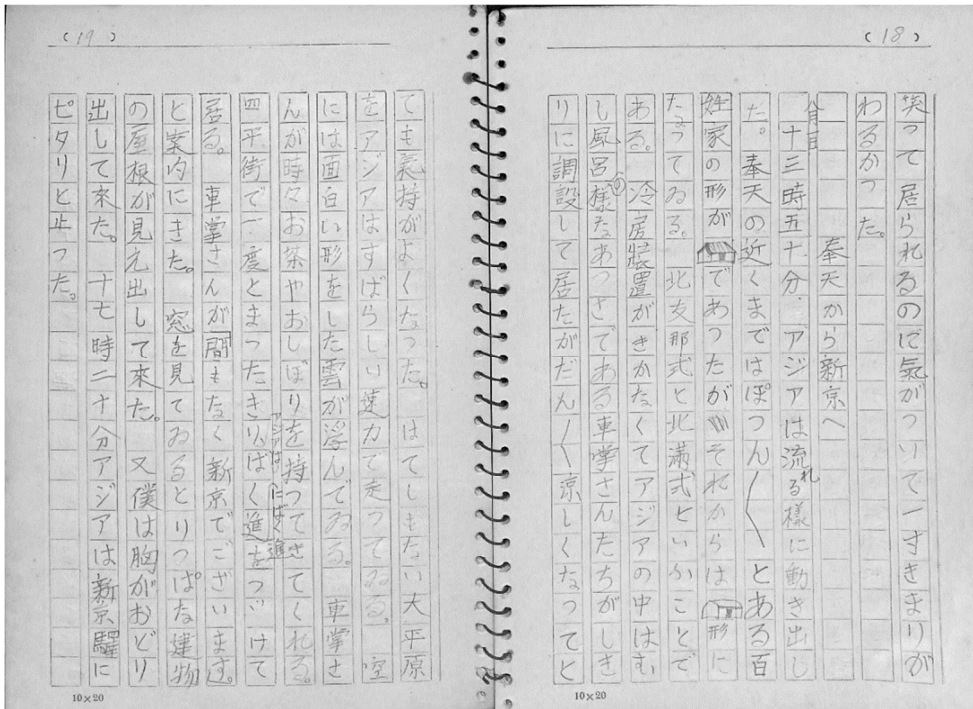 （18）
笑って居られるのに氣がついて一すきまりが
わるかつた。
奉天から新京へ
八月一日
十三時五十分、アジアは流れる樣に動き出し
た。奉天の近くまではぽつん〱とある百
姓家の形が であつたが それからは 形に
たつてゐる。北支那式と北滿式といふことで
ある。冷房裝置がきかなくてアジアの中はむ
し風呂の樣なあつさである車掌さんたちがしき
りに調設して居たがだん〱涼しくなつてと
10×20
（19）
ても氣持がよくなつた。はてしもない大平原
をアジアはすばらしい速力で走つてゐる。空
には面白い形をした雲が浮んでゐる。車掌さ
んが時々お茶やおしぼりを持つてきてくれる。
四平街で一度とまつたきり、ばく進をつゞけて
居る。車掌さんが間もなく新京でございます。
と案内にきた。窓を見てゐるとりつぱな建物
の屋根が見え出して來た。又僕は胸がおどり
出して來た。十七時二十分アジアは新京驛に
ピタリと止つた。
10×20